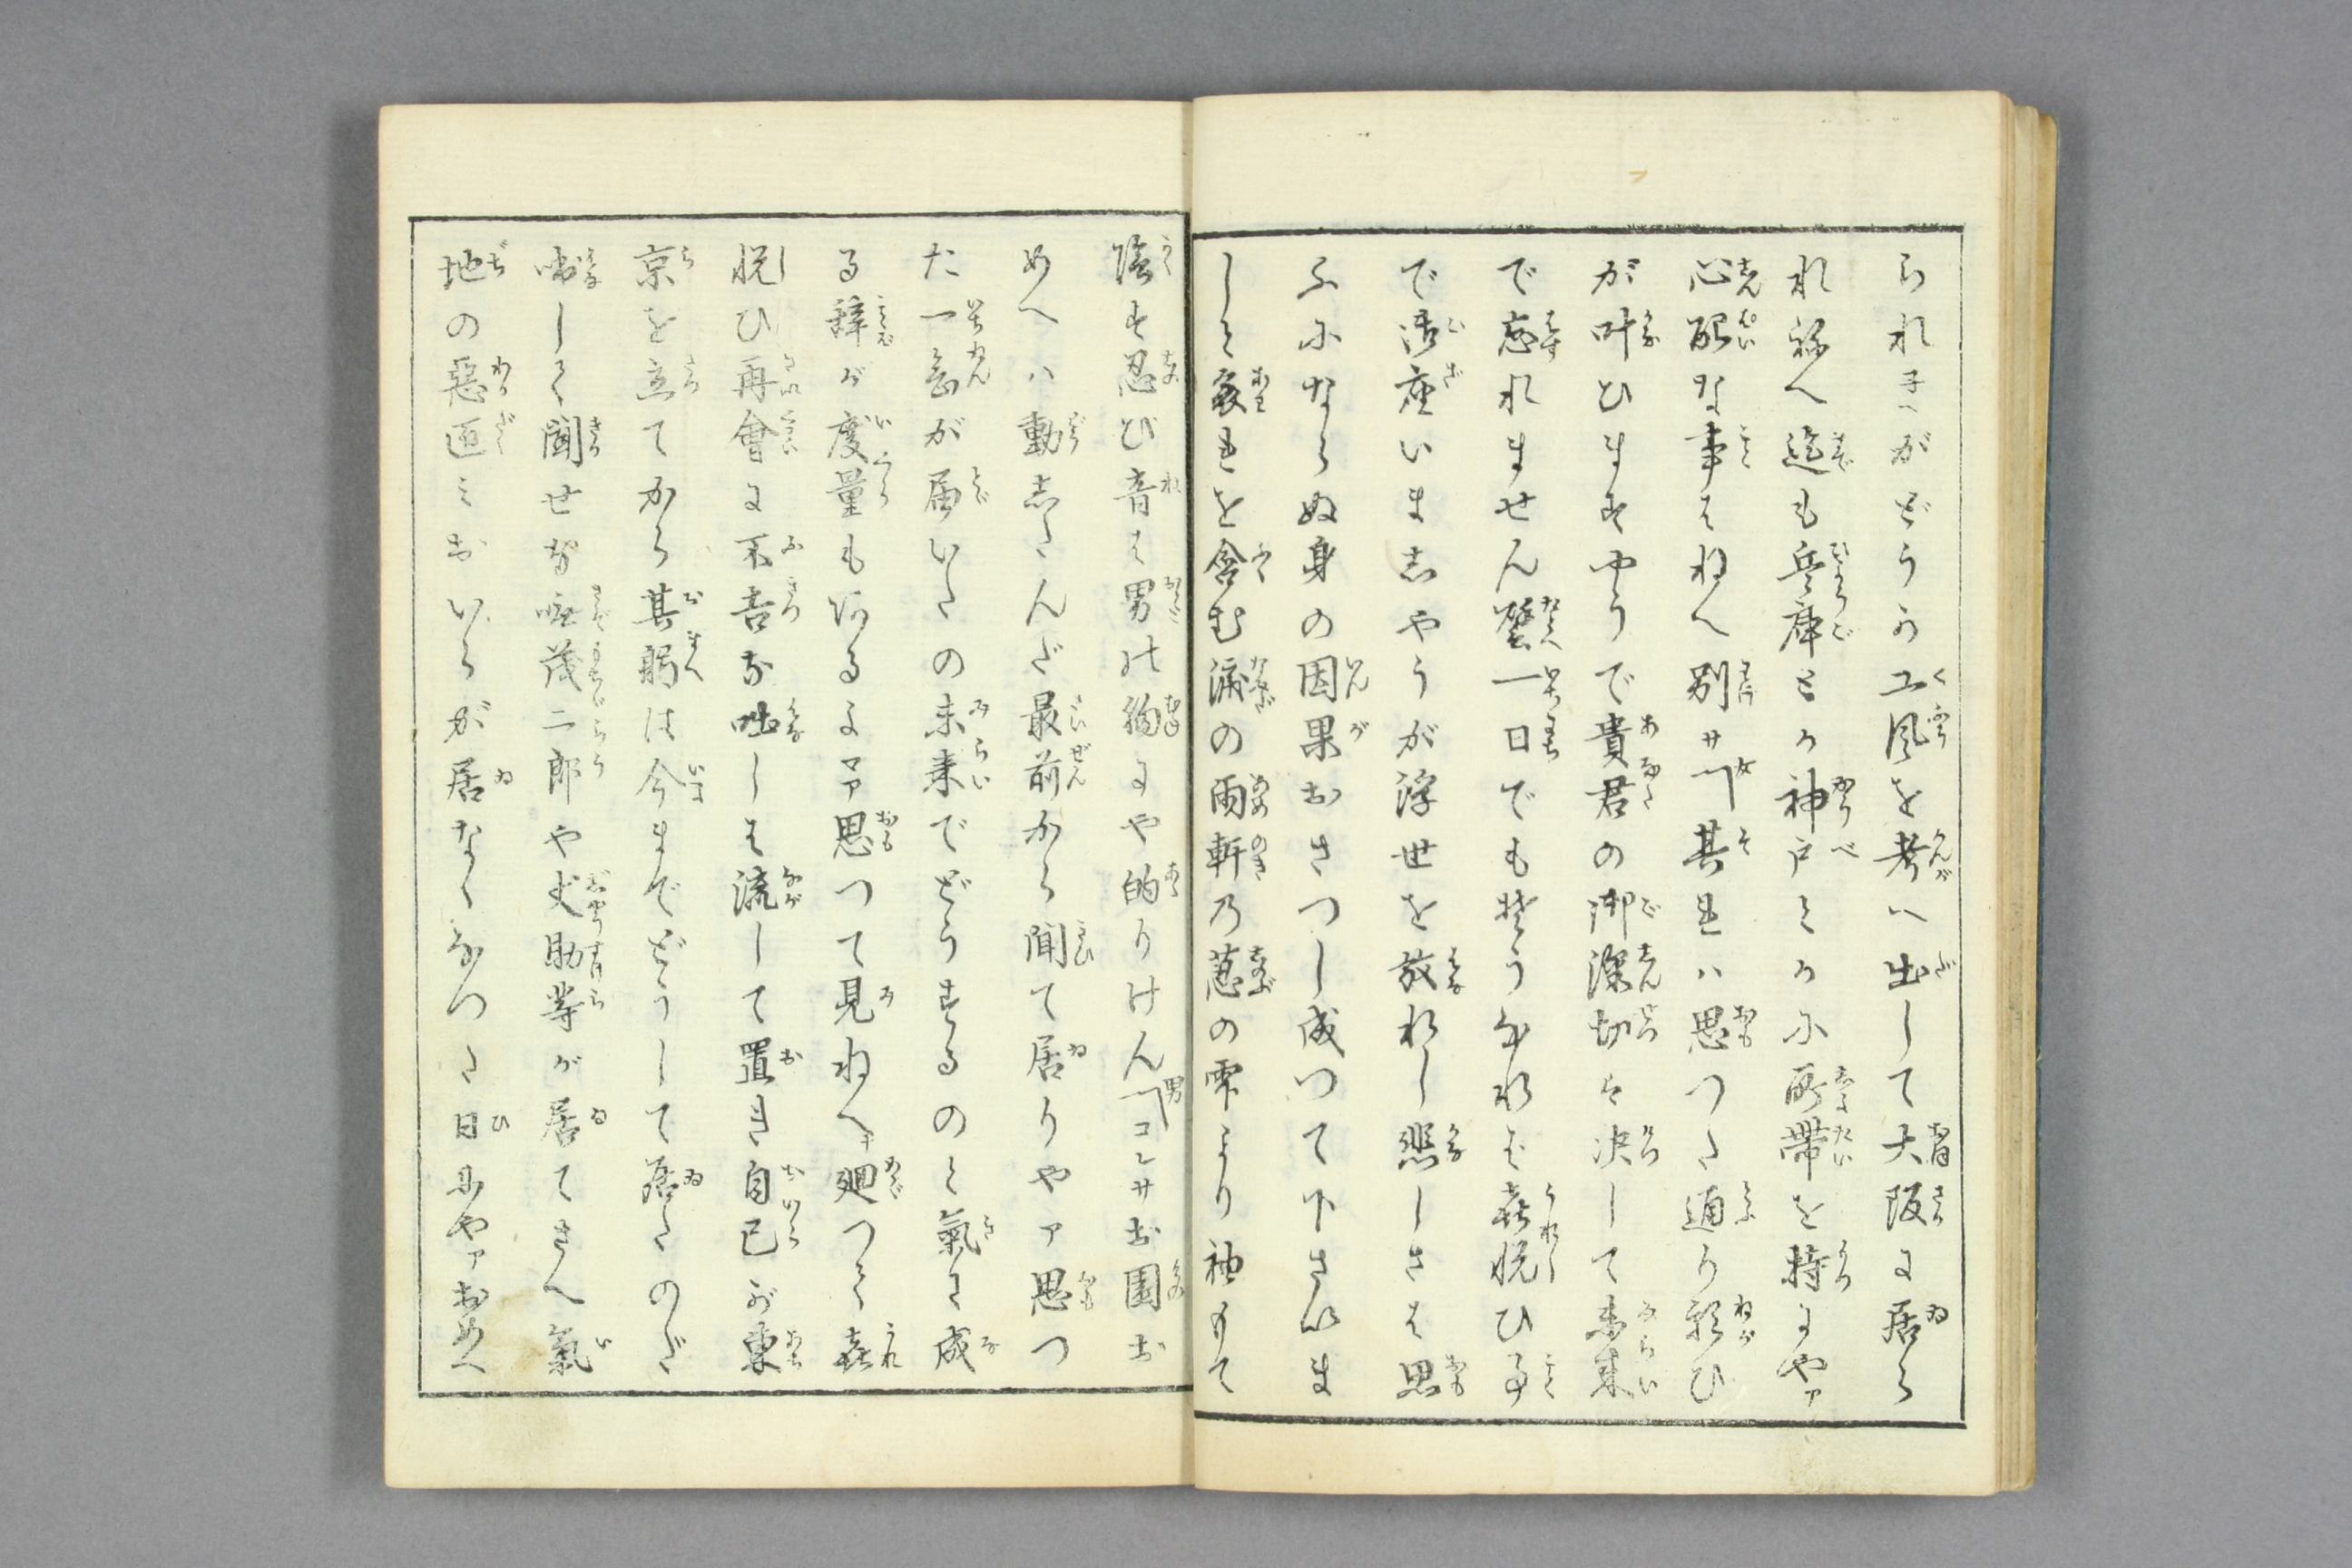 られネヘがどうか工風を考へ出して大阪に居ら
れ祢へ迄も兵庫とか神戸とかに所帯を持にやァ
心配な事はねへ別サ 女其レハ思つた通り願ひ
が叶ひますやうで貴君の御深切は决して未来
で忘れません譬一日でもそうなれば喜悦ひ事
で御座いましやうが浮世を放れし悲しさは思
ふにならぬ身の因果おさつし成つて下さいま
しと哀れを含む涙の雨軒乃荵の雫より袖もて
陰す忍び音は男の胸にや的りけん 男コレサお園お
めへハ動したんだ最前から聞て居りやァ思つ
た一念が届いたの未来でどうするのと氣に成
る辞が度量も有るよマア思つて見ねへナ廻つて喜
悦ひ再會に不吉な咄しは流して置き自己が東
京を立てから其躬は今までどうして居たのだ
咄しく聞せな 茂二郎や丈助等が居てさへ氣
地の惡匝ミおいらが居なくなつた日にやァおめへ